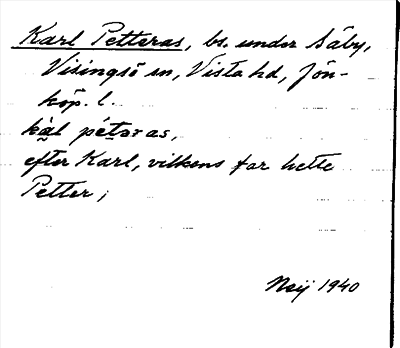 Karl Petteras, bs. under Säby,
Visingsö sn, Vista hd, Jön-
köp. l.
kal péteras,
efter Karl, vilkens far hette
Petter;
Nsij 1940